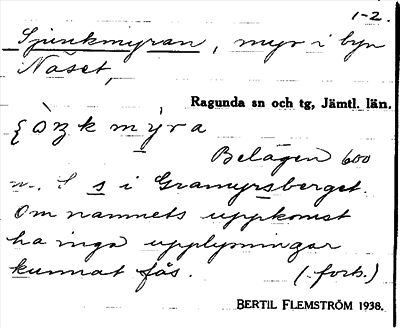 1-2.
Sjunkmyran, myr i byn
Näset,
Ragunda sn och tg, Jämtl. län.
Belägen 600
m. S s i Gramyrsberget.
Om namnets uppkomst
ha inga upplysningar
kunnat fås. (forb.)
BERTIL FLEMSTRÖM 1938.